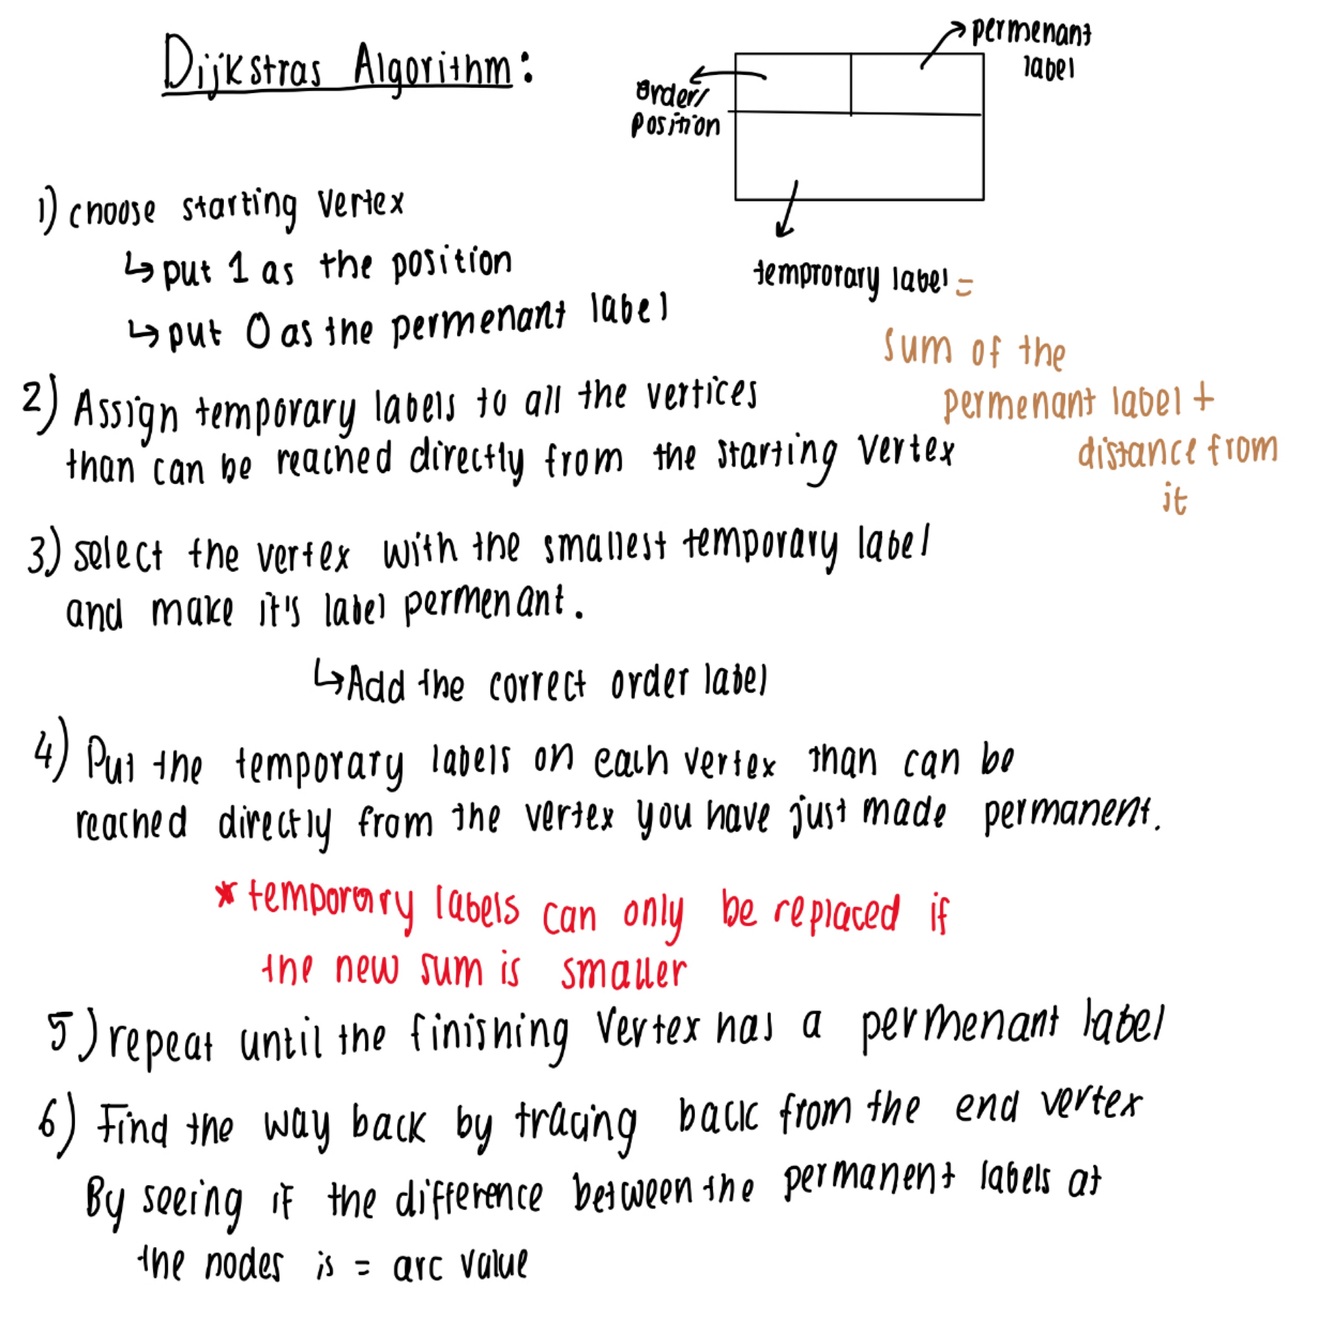 Dijkstras Algorithm:
permenant
label
order/
position
temprorary label =
sum of the
permenant label +
distance from
it
1) choose starting vertex
↳ put 1 as the position
↳ put 0 as the permenant label
2) Assign temporary labels to all the vertices
than can be reached directly from the starting vertex
3) select the vertex with the smallest temporary label
and make it's label permenant.
↳ Add the correct order label
4) Put the temporary labels on each vertex than can be
reached directly from the vertex you have just made permanent.
* temporary labels can only be replaced if
the new sum is smaller
5) repeat until the finishing vertex has a permenant label
6) Find the way back by tracing back from the end vertex
By seeing if the difference between the permanent labels at
the nodes is = arc value